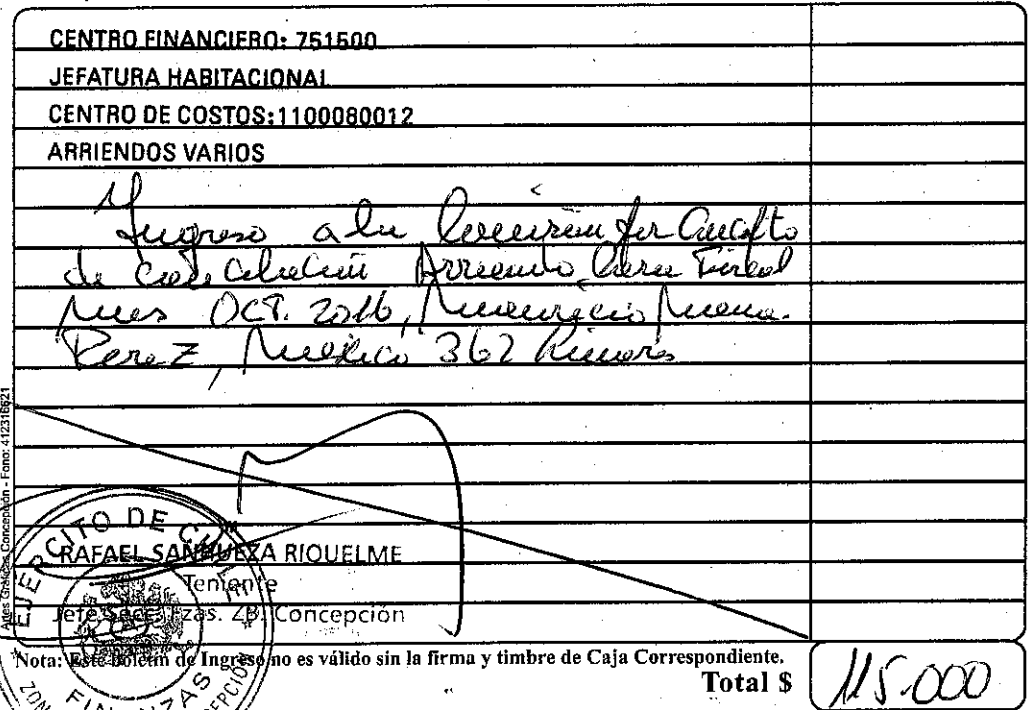 CENTRO FINANCIERO: 751500
JEFATURA HABITACIONAL
CENTRO DE COSTOS:1100080012
ARRIENDOS VARIOS
Ingreso a la
de Arriendo Fiscal
mes OCT. 2016, Mauricio
Perez, 362
Artes Gráficas Concepción - Fono: 412316621
EJERCITO DE CHILE
RAFAEL SANHUEZA RIQUELME
Teniente
Jefe Secc. Fzas. ZB. Concepción
FINANZAS
Nota: Este boletín de Ingreso no es válido sin la firma y timbre de Caja Correspondiente.
Total $ 115.000